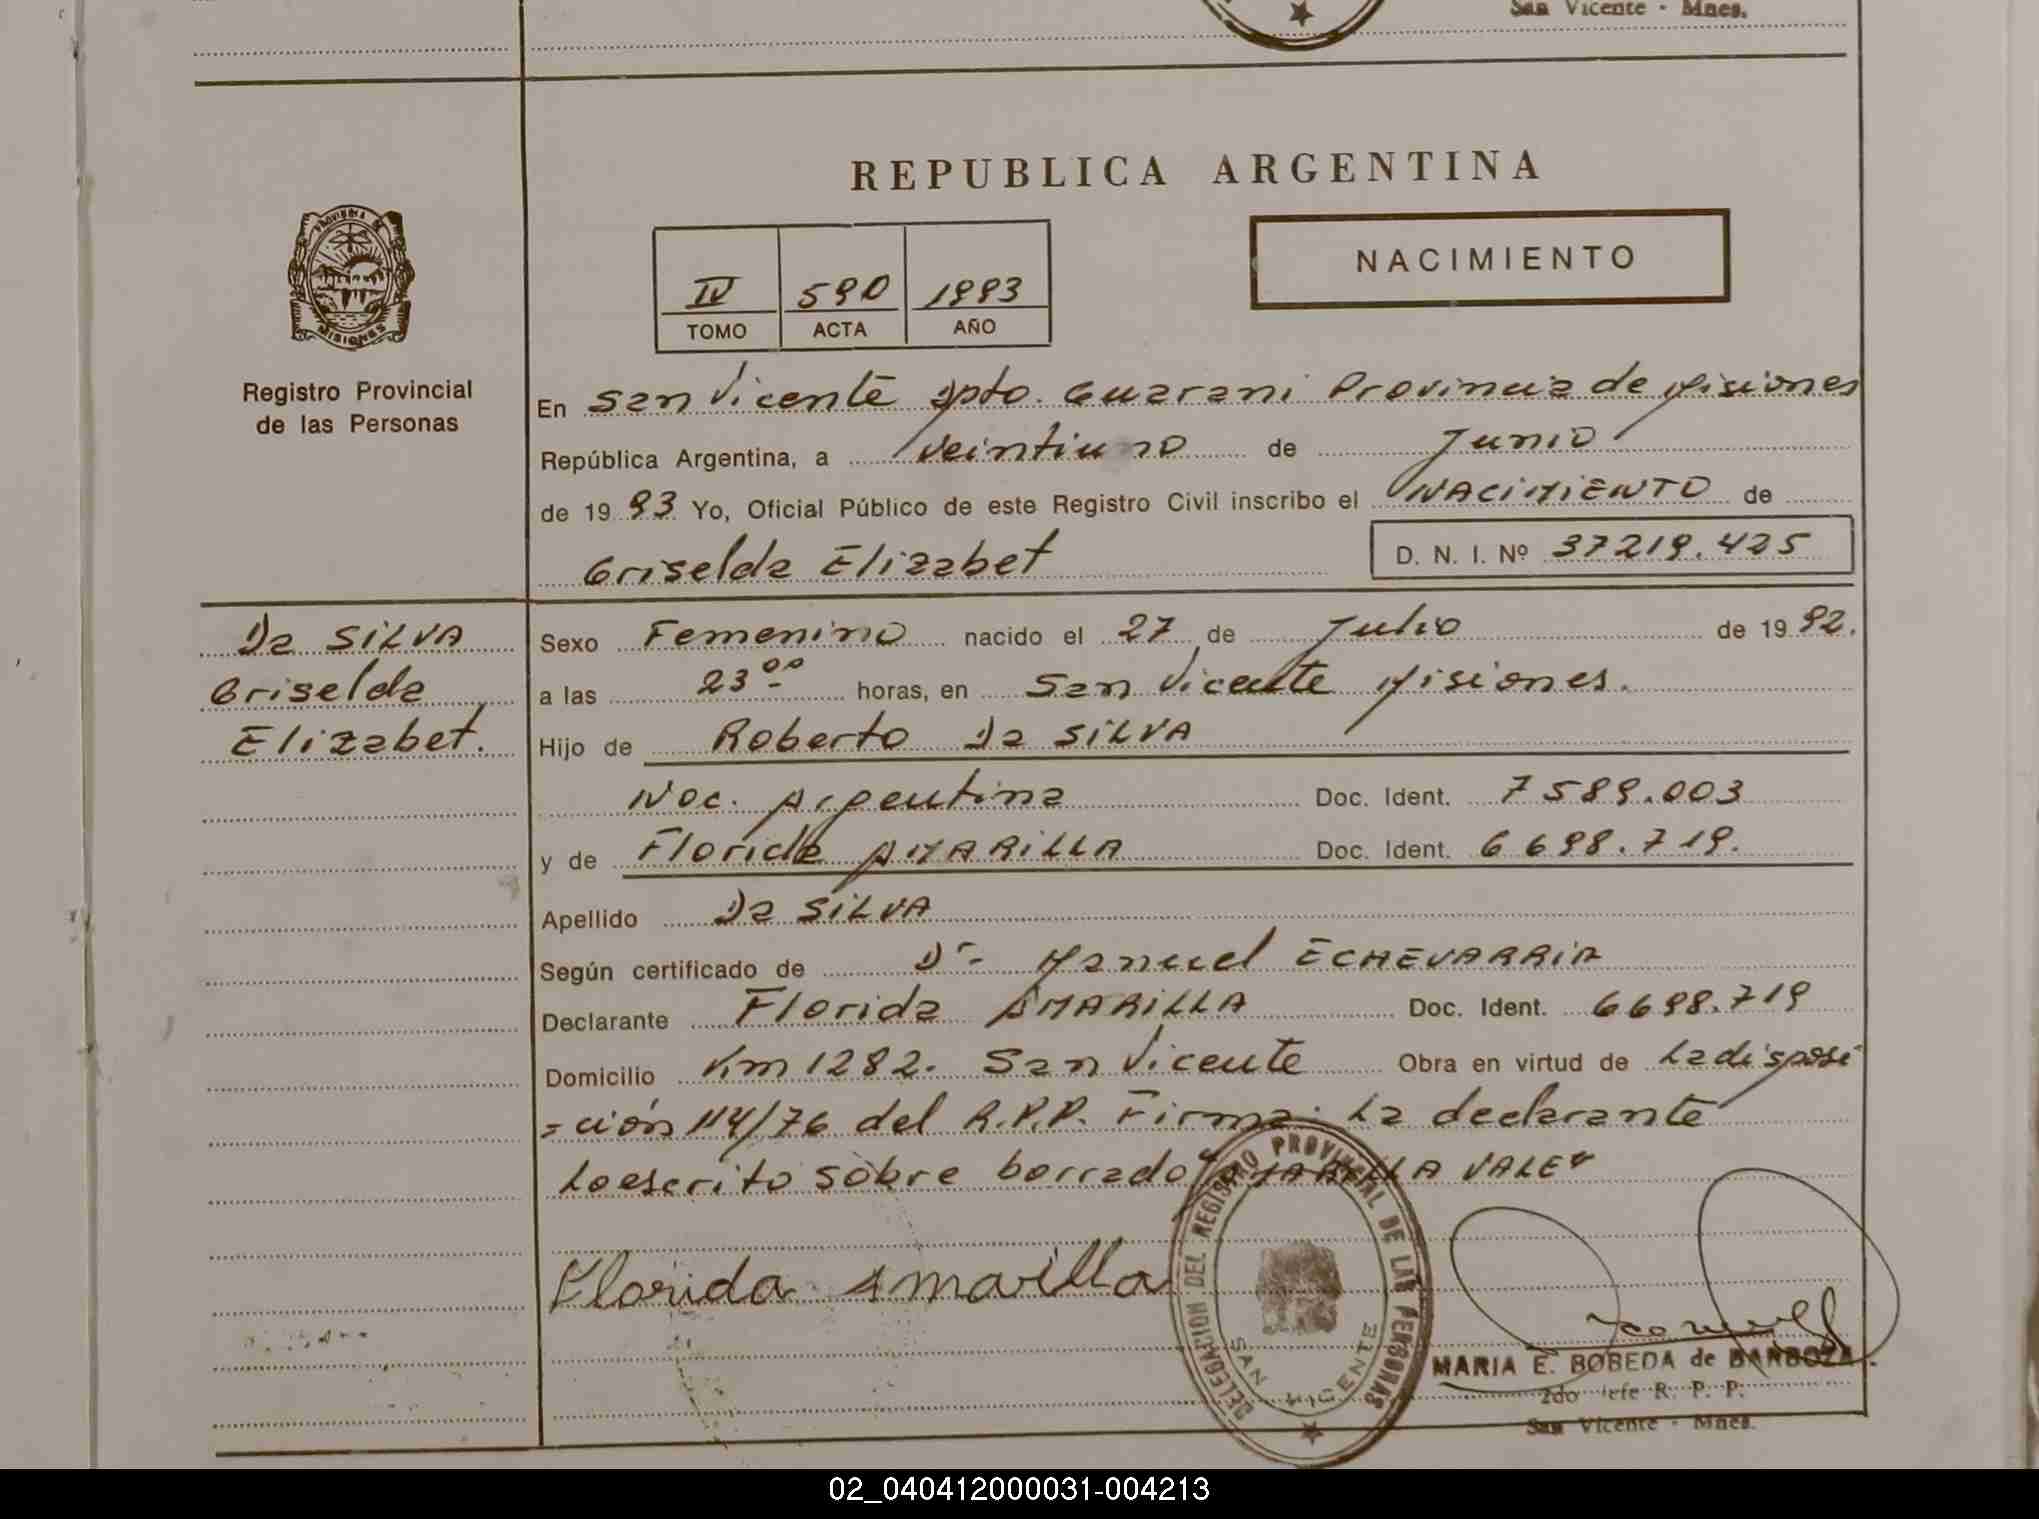 San Vicente - Mnes.
REPUBLICA ARGENTINA
PROVINCIA DE MISIONES
Registro Provincial
de las Personas
IV 590 1993
TOMO ACTA AÑO
NACIMIENTO
En San Vicente Dpto. Guarani Provincia de Misiones
República Argentina, a Veintiuno de Junio
de 1993 Yo, Oficial Público de este Registro Civil inscribo el NACIMIENTO de
Griselda Elizabet D. N. I. Nº 37219.425
Da SILVA
Griselda
Elizabet.
Sexo Femenino nacido el 27 de Julio de 1992.
a las 23⁰⁰ horas, en San Vicente Misiones.
Hijo de Roberto Da SILVA
Nac. Argentina Doc. Ident. 7589.003
y de Florida AMARILLA Doc. Ident. 6698.719.
Apellido Da SILVA
Según certificado de Dr. Manuel ECHEVARRIA
Declarante Florida AMARILLA Doc. Ident. 6698.719
Domicilio Km 1282. San Vicente Obra en virtud de La disposi
=ción 114/76 del R.P.P. Firma: La declarante
Lo escrito sobre borrado "AMARILLA VALE"
Florida Amarilla
DELEGACION DEL REGISTRO PROVINCIAL DE LAS PERSONAS
SAN VICENTE
MARIA E. BOBEDA de BARBOZA
2do Jefe R. P. P.
San Vicente - Mnes.
02_040412000031-004213